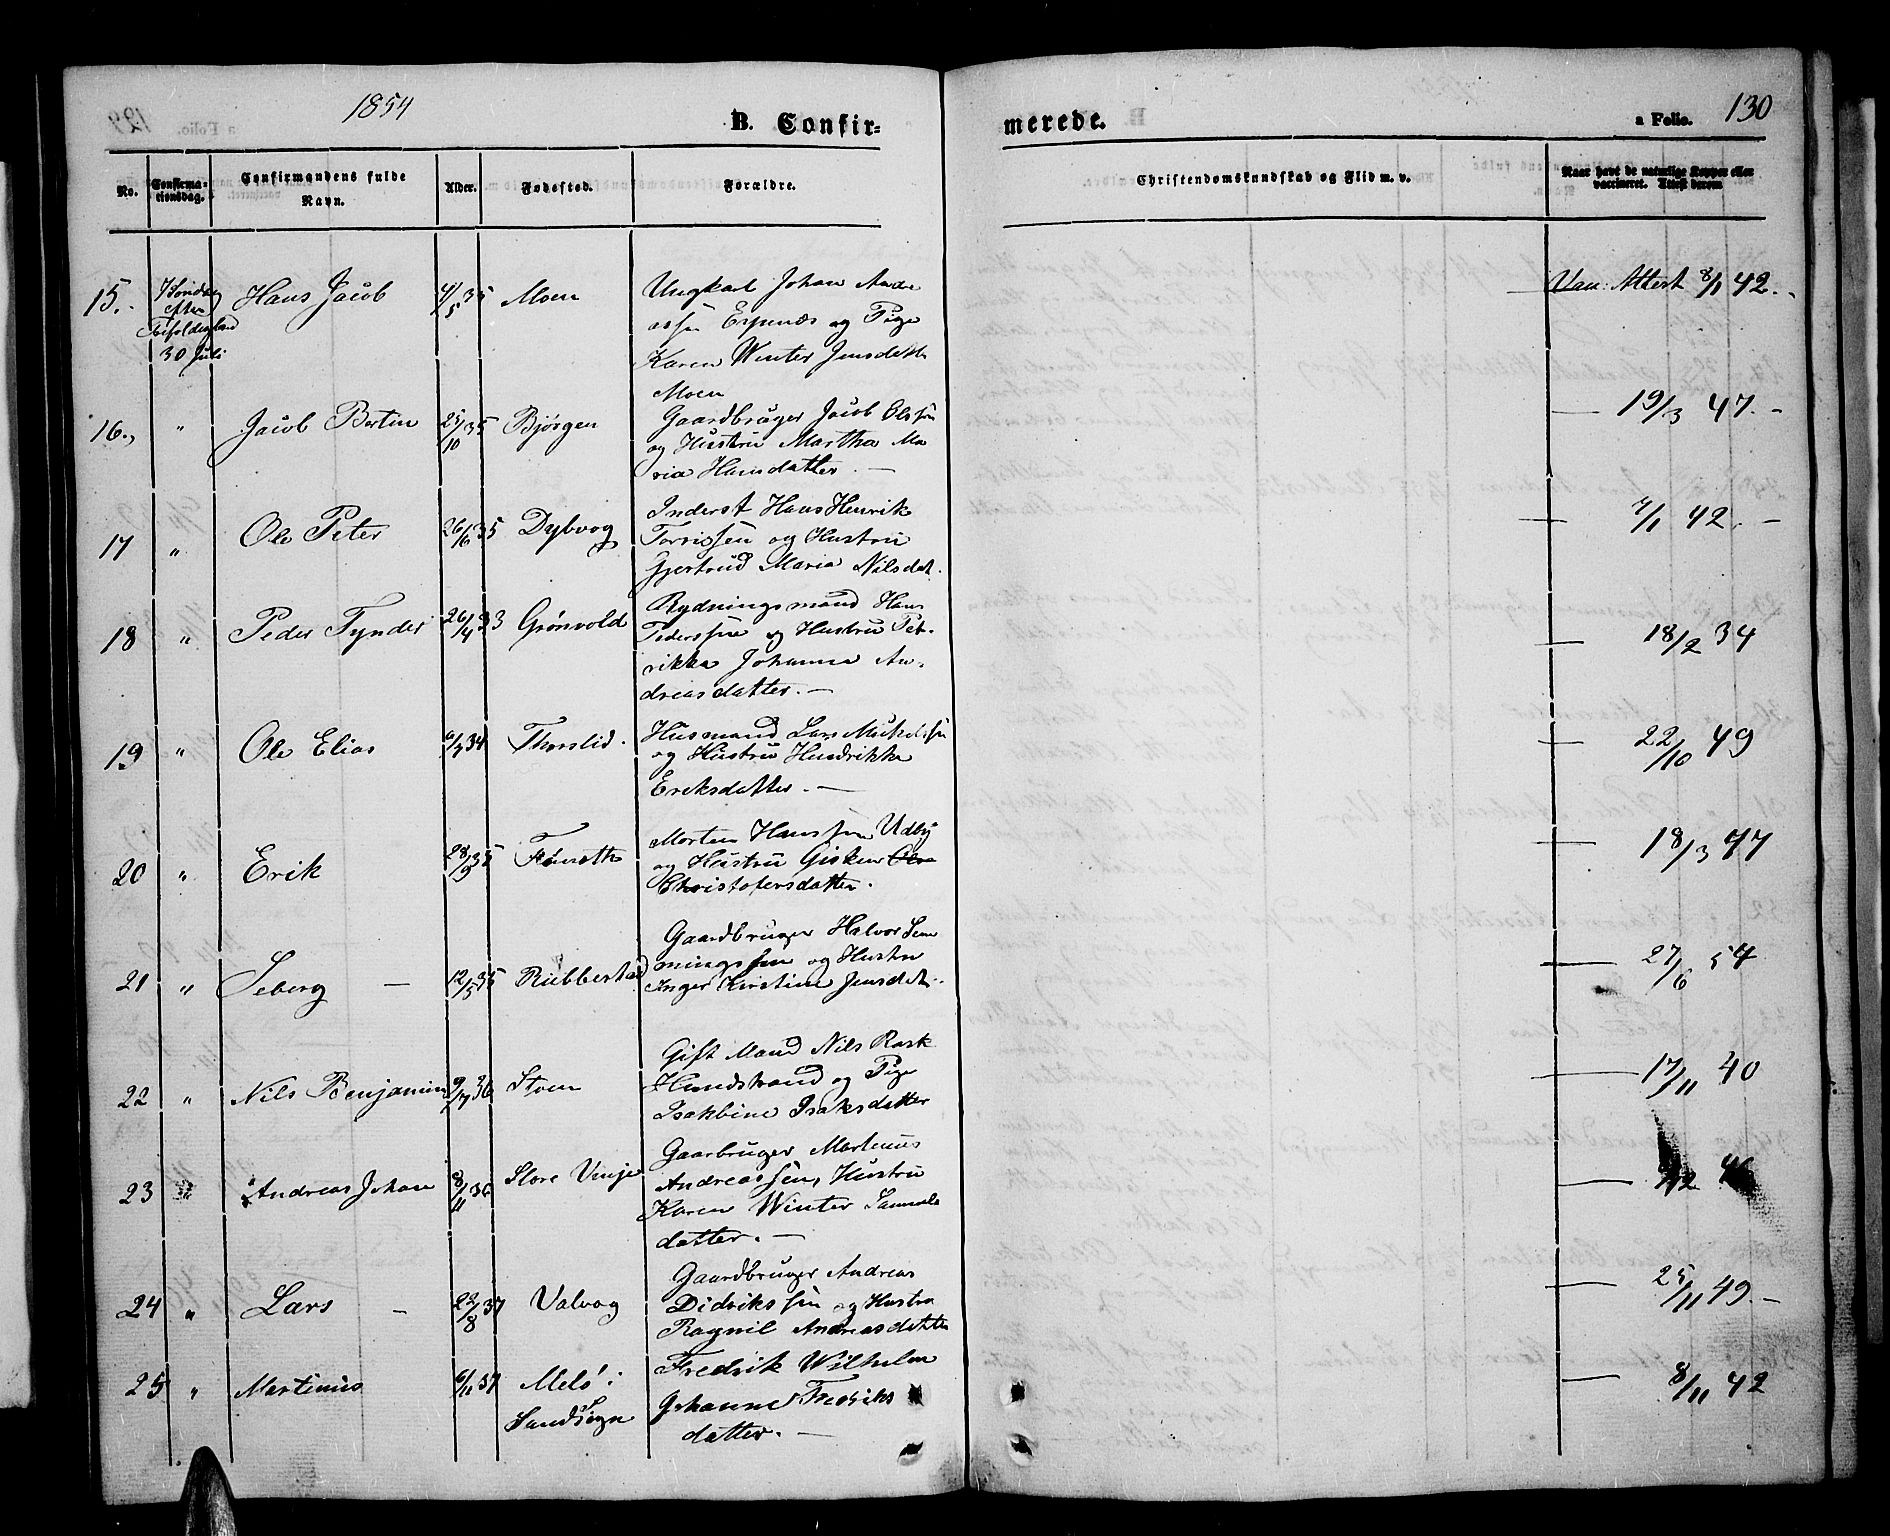 1854
B. Confir-
merede.
a Folio. 130
No.
Confirma-
tionsdag.
Confirmandens fulde
Navn.
Alder.
Fødested.
Forældre.
Christendomskundskab og Flid m. v.
Naar havt de naturlige Kopper eller
vaccineret. Attest derom
15.
30 Juli
Hans Jacob
35
Moen
Ungkarl Johan Andre
assen Espenæs og Pige
Karen Winter Jensdatter
Moen
Vac. Attest 8/1 42.
16.
"
Jacob Bertin
25/10 35
Bjørgen
Gaardbruger Jacob Olssen
og Hustru Martha Ma
ria Hansdatter. —
— 19/3 47. -
17
"
Ole Peter
26/6 35
Dybvog
Inderst Hans Henrik
Torrissen og Hustru
Gjertrud Maria Nilsdat.
— 7/1 42. -
18
"
Peder Tynder
26/4 33
Grønvold
Rydningsmand Hans
Pederssen og Hustru Pet-
rikke Johanna An-
dreasdatter. —
— 18/2 34
19
"
Ole Elias
34
Thorslid.
Husmand Lars Mikelssen
og Hustru Hendrikka
Ereksdatter. —
— 22/10 49
20
"
Erik
Morten Hanssen Udby
og Hustru Gisken
Christofersdatter.
— 18/3 47
21
"
Seberg —
12/5 35
Rubbestad
Gaardbruger Halvor Sem
mingssen og Hustru
Inger Kirstine Jensdat.
— 27/6 54
22
"
Nils Benjamin
9/7 36
Stoen
Gift Mand Nils Rask
Hundstrand og Pige
Isakbine Isaksdatter
— 17/11 40
23
"
Andreas Johan
8/11 36
Store Vinje
Gaarbruger Martenus
Andreassen, Hustru
Karen Winter Samuels
datter. —
24
"
Lars -
22/8 37
Valvog
Gaardbruger Andreas
Didrikssen og Hustru
Ragnil Andreasdatter
— 25/11 49. -
25
"
Martinus
6/11 37
Melö i
Sandsogn
Fredrik Wilhelm
Johanne Fredriks
datter. —
— 8/11 42